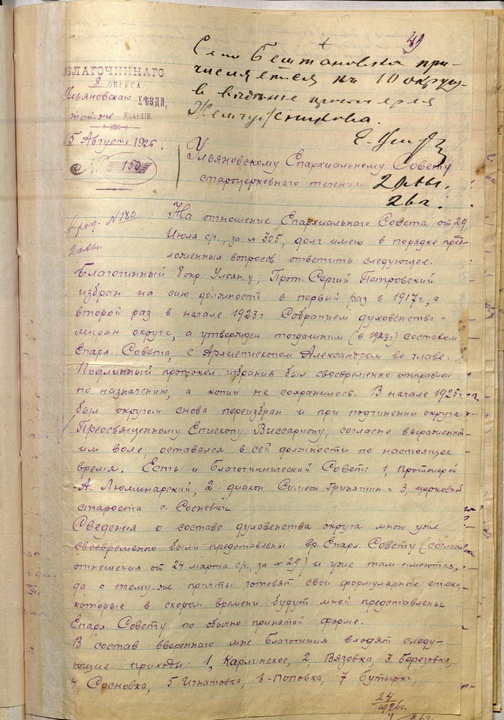 49
Село Бештановка при-
числяется къ 10 округу
в ведение протоиерея
БЛАГОЧИННАГО
8 ОКРУГА
Ульяновскаго УѢЗДА,
5 Августа 1926
№ 150
Ульяновскому Епархиальному Совету
староцерковнаго течения
2 авг.
26 г.
На отношение Епархиальнаго Совета от 29
Июля с/г., за № 305, долг имею в порядке пред-
ложенных вопросов ответить следующее.
Благочинный 8 окр. Ульян. у., Прот. Сергий Петровский
избран на сию должность в первый раз в 1917 г., а
второй раз в начале 1923 г. Собранием духовенства-
мирян округа, а утвержден тогдашним (в 1923 г.) составом
Епарх. Совета, с Архиепископом Александром во главе.
Подлинный протокол избрания был своевременно отправлен
по назначению, а копии не сохранилось. В начале 1925 г.
был округом снова переизбран и при подчинении округа
Преосвященному Епископу Виссариону, согласно выраженной
им воле, оставался в сей должности по настоящее
время. Есть и Благочиннический Совет: 1, протоиерей
А. Люминарский, 2 диакон Симеон 3, церковный
староста с. Сосновки
Сведения о составе духовенства округа мною уже
своевременно были представлены Епарх. Совету (согласно
отношения от 24 марта с/г. за № 29) и уже там имеются,
да к тому-же причты готовят свои формулярные списки,
которые в скором времени будут мной представлены
Епарх. Совету по обычно принятой форме.
В состав ввереннаго мне благочиния входят следу-
ющие приходы: 1, Карлинское, 2 Вязовка, 3. Березовка,
4, Сосновка, 5 Игнатовка, 6-Поповка, 7 Бутырки